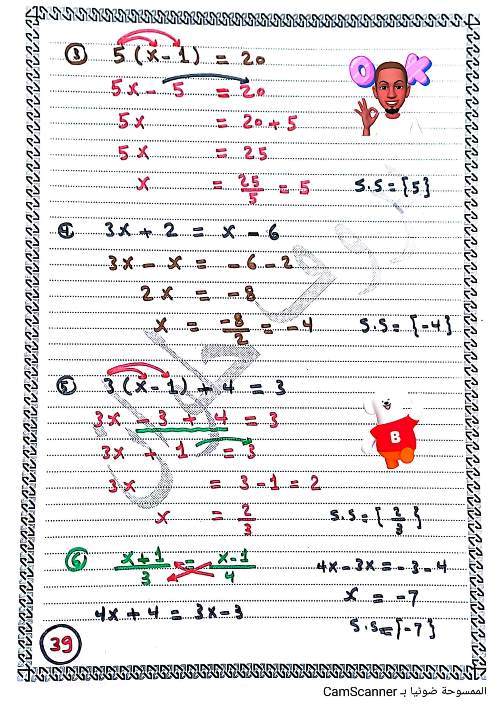 ③ 5 (x - 1) = 20
OK
5x - 5 = 20
5x = 20 + 5
5x = 25
x = 25/5 = 5 S.S = {5}
④ 3x + 2 = x - 6
3x - x = -6 - 2
2x = -8
x = -8/2 = -4 S.S = {-4}
⑤ 3 (x - 1) + 4 = 3
3x - 3 + 4 = 3
B
3x + 1 = 3
3x = 3 - 1 = 2
x = 2/3 S.S = { 2/3 }
⑥ x + 1 / 3 = x - 1 / 4
4x + 4 = 3x - 3
4x - 3x = -3 - 4
x = -7
S.S = {-7}
39
الممسوحة ضوئيا بـ CamScanner